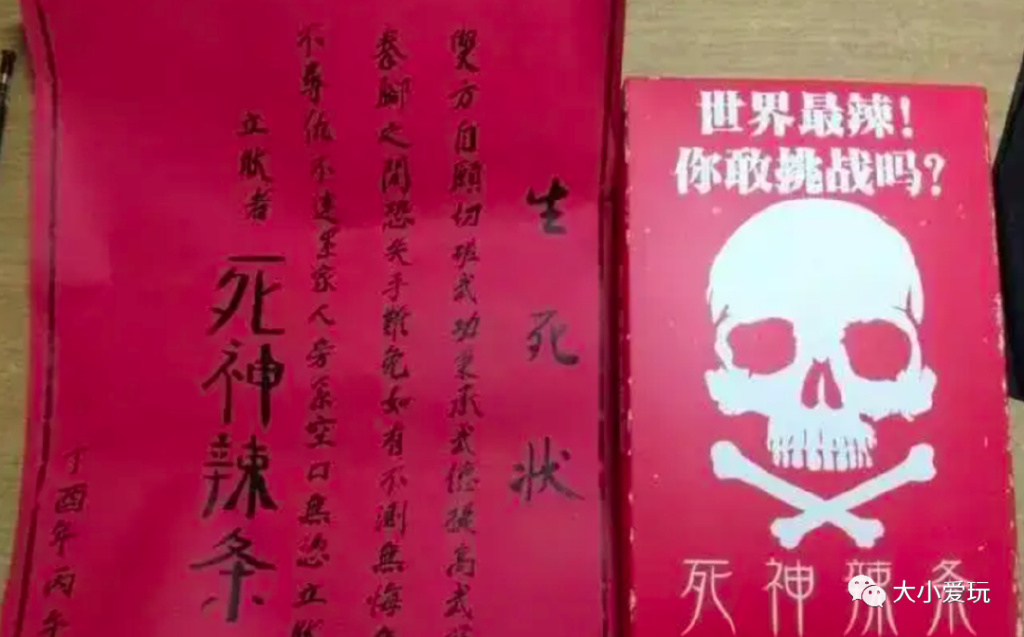 生死状
雙方自願切磋武功秉承武德提高武
拳腳之間恐失手難免如有不測無悔
不尋仇不連累家人旁系空口無憑立狀
立狀者 死神辣条
丁酉年丙午
世界最辣！
你敢挑战吗？
死神辣条
大小爱玩